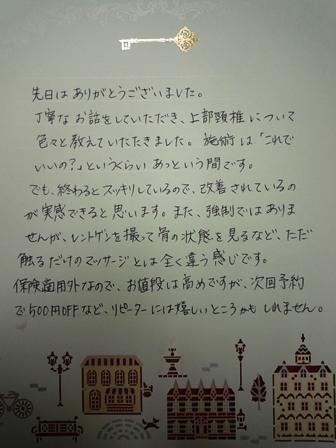 先日はありがとうございました。
丁寧なお話をしていただき、上部頸椎について
色々と教えていただきました。施術は「これで
いいの?」というくらいあっという間です。
でも、終わるとスッキリしているので、改善されているの
が実感できると思います。また、強制ではありま
せんが、レントゲンを撮って骨の状態を見るなど、ただ
触るだけのマッサージとは全く違う感じです。
保険適用外なので、お値段は高めですが、次回予約
で500円OFFなど、リピーターには嬉しいところかもしれません。